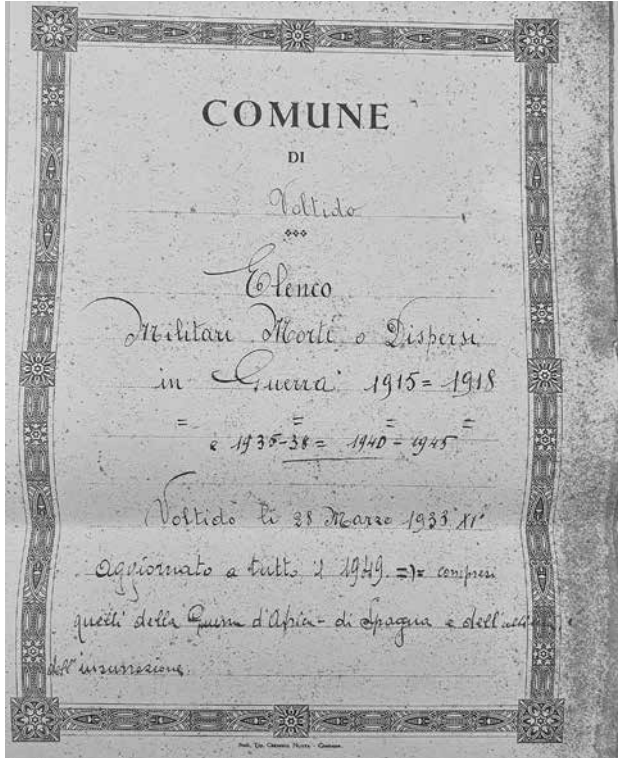 COMUNE
DI
Voltido
Elenco
Militari Morti o Dispersi
in Guerra 1915=1918
= = = =
e 1935-38= 1940=1945
Voltido li 28 Marzo 1933 XI°
aggiornato a tutto il 1949 =)= compresi
quelli della Guerra d'Africa - di Spagna e dell'
dell'insurrezione.